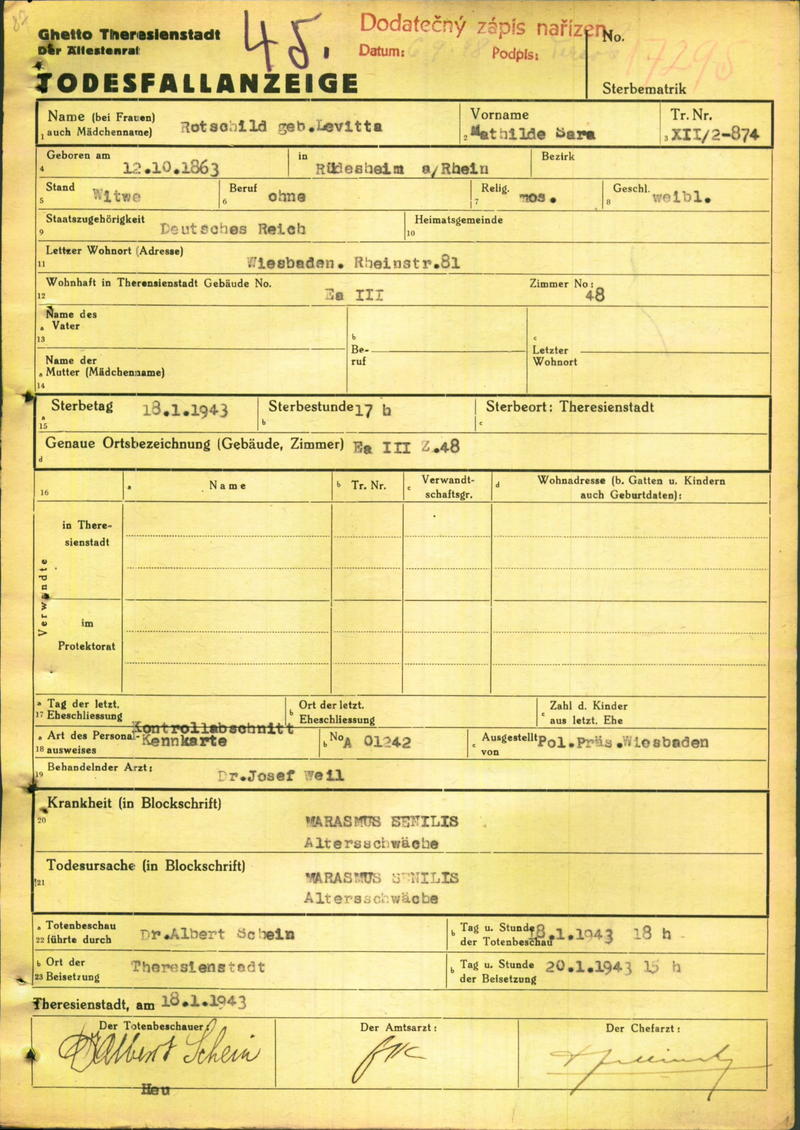 Ghetto Theresienstadt
Der Ältestenrat
45.
Dodatečný zápis nařízen
Datum: Podpis:
No.
TODESFALLANZEIGE
Sterbematrik
Name (bei Frauen) Rotschild geb.Levitta Vorname Mathilde Sara Tr. Nr.
1 auch Mädchenname) 2 3 XII/2-874
Geboren am 12.10.1863 in Rüdesheim a/Rhein Bezirk
4
Stand Witwe Beruf ohne Relig. mos. Geschl. weibl.
5 6 7 8
Staatszugehörigkeit Deutsches Reich Heimatsgemeinde
9 10
Letzter Wohnort (Adresse)
11 Wiesbaden. Rheinstr.81
Wohnhaft in Theresienstadt Gebäude No. Ea III Zimmer No: 48
12
Name des
a Vater
13
b Beruf
c Letzter Wohnort
Name der
a Mutter (Mädchenname)
14
a Sterbetag 18.1.1943 b Sterbestunde 17 h c Sterbeort: Theresienstadt
15
Genaue Ortsbezeichnung (Gebäude, Zimmer) Ea III Z.48
d
16 a Name b Tr. Nr. c Verwandtschaftsgr. d Wohnadresse (b. Gatten u. Kindern
auch Geburtdaten):
Verwandte
in Theresienstadt
im
Protektorat
a Tag der letzt. b Ort der letzt. c Zahl d. Kinder
17 Eheschliessung Eheschliessung aus letzt. Ehe
Kontrollabschnitt
a Art des Personal- Kennkarte b No A 01242 c Ausgestellt Pol.Präs.Wiesbaden
18 ausweises von
Behandelnder Arzt:
19 Dr.Josef Weil
Krankheit (in Blockschrift)
20 MARASMUS SENILIS
Altersschwäche
Todesursache (in Blockschrift)
21 MARASMUS SENILIS
Altersschwäche
a Totenbeschau Dr.Albert Schein b Tag u. Stunde 18.1.1943 18 h
22 führte durch der Totenbeschau
b Ort der Theresienstadt b Tag u. Stunde 20.1.1943 15 h
23 Beisetzung der Beisetzung
Theresienstadt, am 18.1.1943
Der Totenbeschauer: Der Amtsarzt: Der Chefarzt:
Dr Albert Schein
Heu